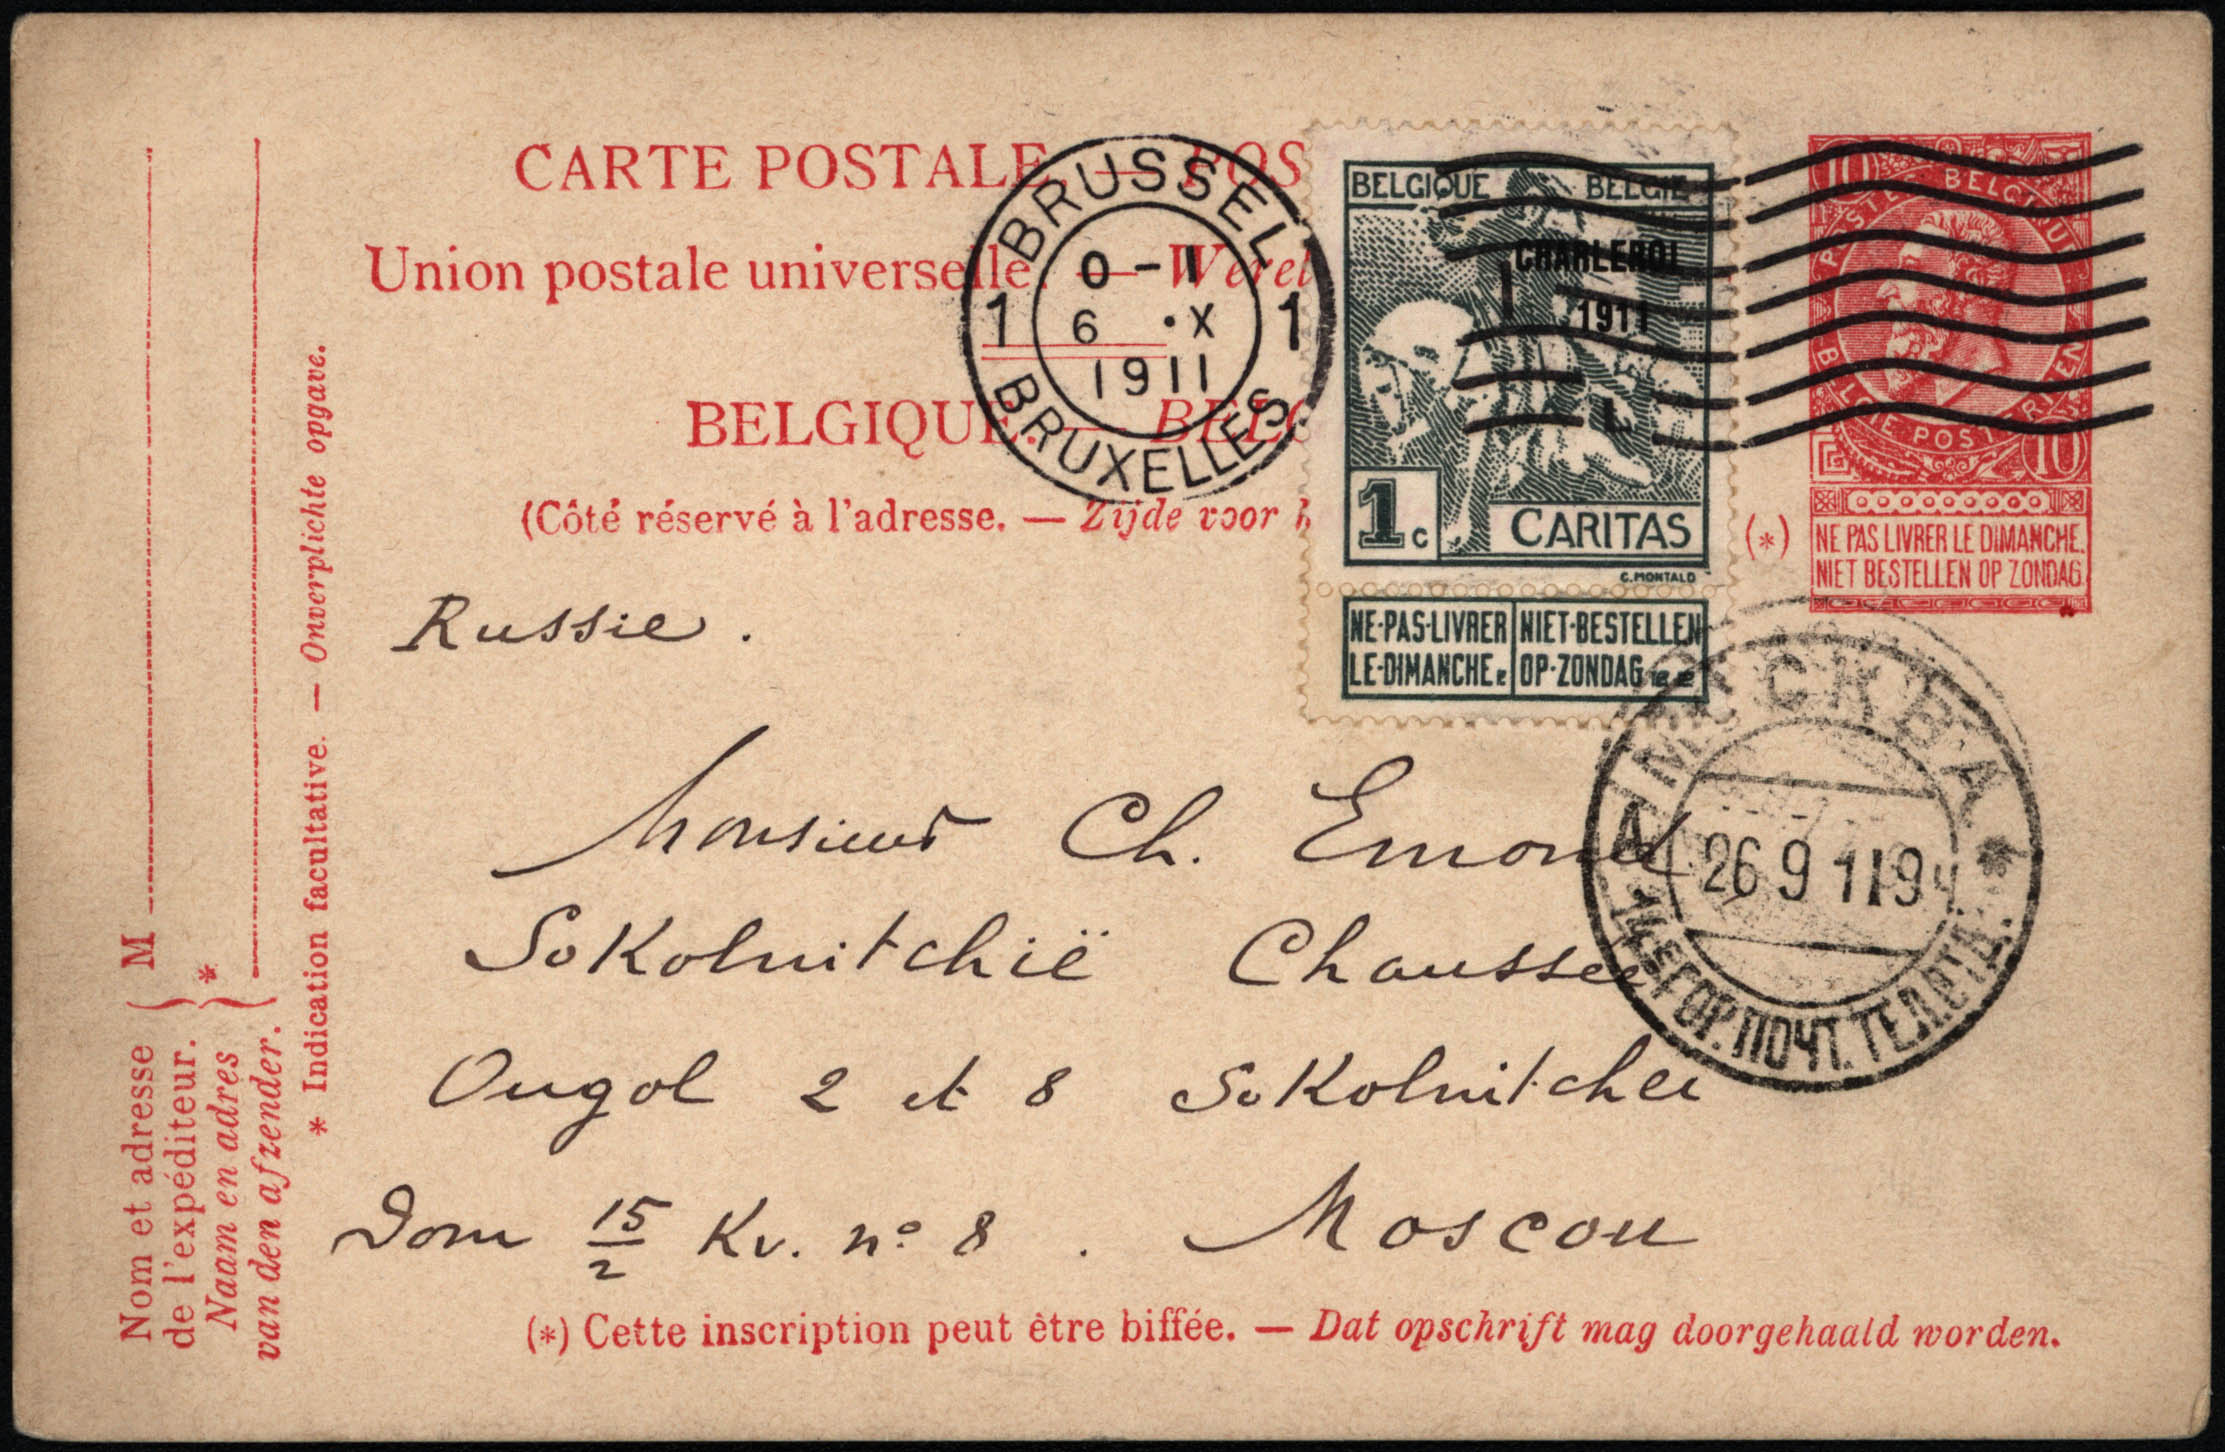 CARTE POSTALE. — POS
Union postale universelle. — Werel
BELGIQUE. — BELG
(Côté réservé à l'adresse. — Zijde voor h
BRUSSEL
1 1
0 – 1
6 • X
1911
BRUXELLES
BELGIQUE BELGIË
CHARLEROI
1911
1c
CARITAS
C. MONTALD
NE·PAS·LIVRER
LE·DIMANCHE
NIET·BESTELLEN
OP·ZONDAG
10 10
POSTES BELGIQUE
BELGIE POSTERIJEN
10
(*)
NE PAS LIVRER LE DIMANCHE.
NIET BESTELLEN OP ZONDAG.
Russie.
Monsieur Ch. Emond
Sokolnitchïë Chaussée
Ougol 2 et 8 Sokolnitchei
Dom 15/2 Kv. n° 8. Moscou
МОСКВА
26 9 11 9
14 ГОР. ПОЧТ. ТЕЛ. ОТД.
(*) Cette inscription peut être biffée. — Dat opschrift mag doorgehaald worden.
Nom et adresse
de l'expéditeur.
Naam en adres
van den afzender.
* M
* Indication facultative. — Onverplichte opgave.